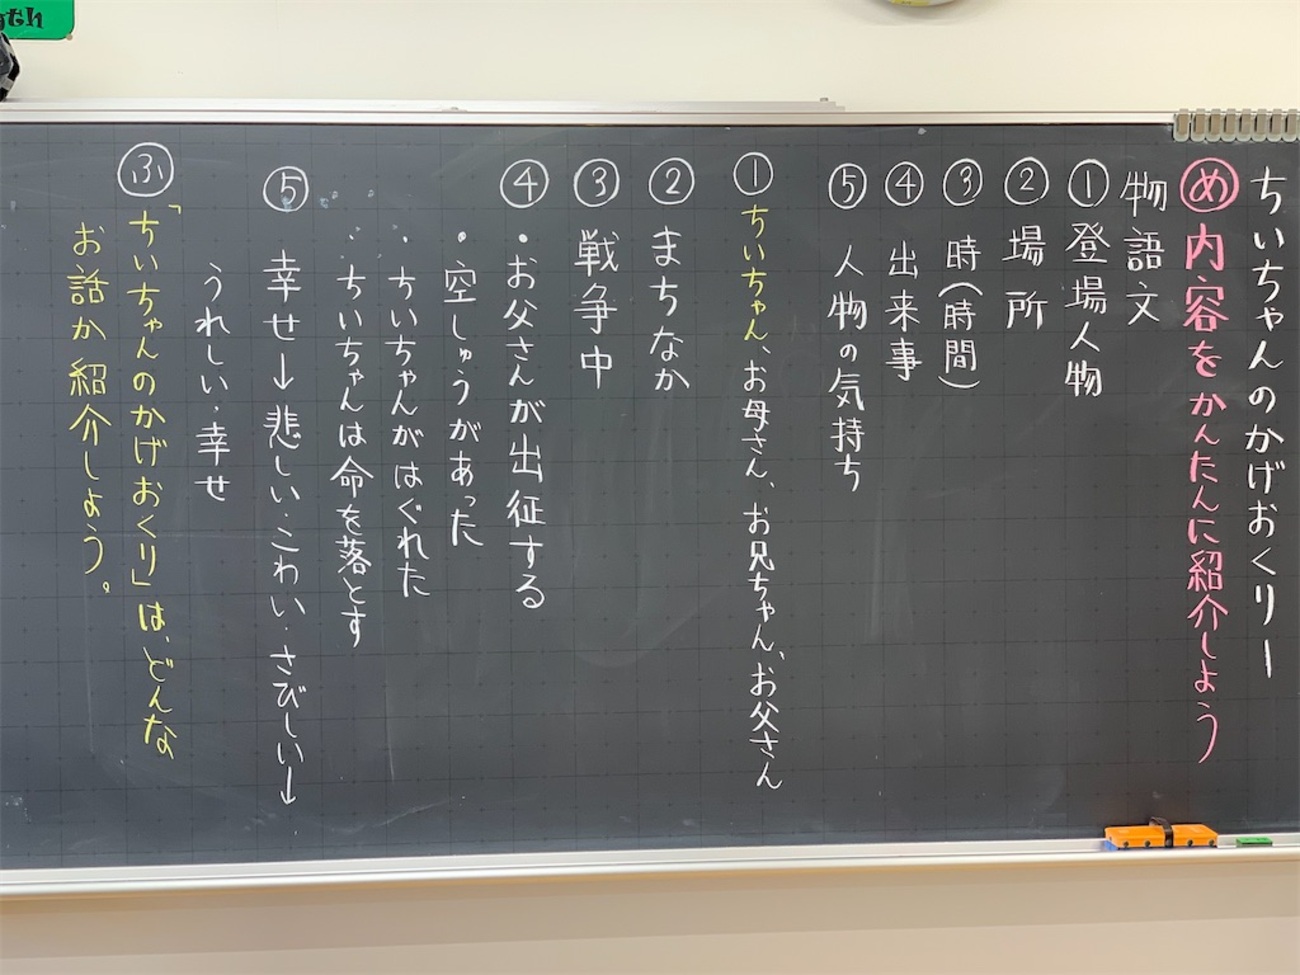 ちいちゃんのかげおくりー
㋱内容をかんたんに紹介しよう
物語文
①登場人物
②場所
③時(時間)
④出来事
⑤人物の気持ち
①ちいちゃん、お母さん、お兄ちゃん、お父さん
②まちなか
③戦争中
④・お父さんが出征する
・空しゅうがあった
・ちいちゃんがはぐれた
・ちいちゃんは命を落とす
⑤幸せ→悲しい・こわい・さびしい→
うれしい・幸せ
ふ「ちいちゃんのかげおくり」は、どんな
お話か紹介しよう。